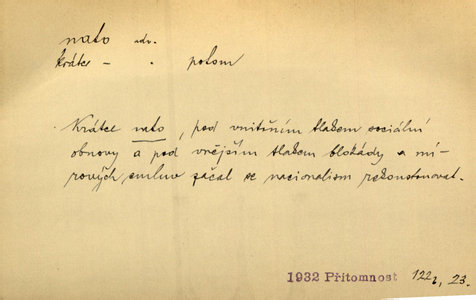 nato adv.
krátce – . potom
Krátce nato, pod vnitřním tlakem sociální
obnovy a pod vnějším tlakem blokády a mí-
rových smluv začal se nacionalism rekonstruovat.
1932 Přítomnost 122, 23.